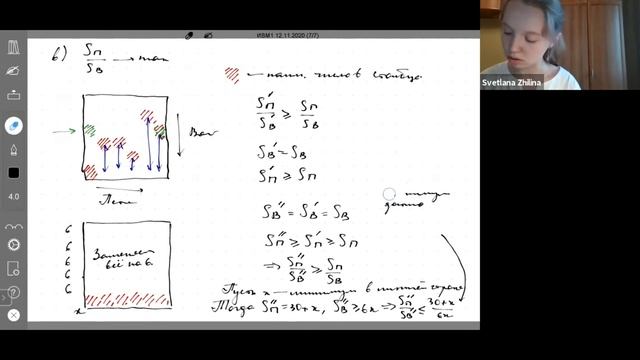 ИВМ1.12.11.2020 (7/7)
Svetlana Zhilina
4.0
в) Sп/Sв → max
— наим. число в столбце
Sп'/Sв' ≥ Sп/Sв
Sв' = Sв
Sп' ≥ Sп
Sв'' = Sв' = Sв
Sп'' ≥ Sп' ≥ Sп
⇒ Sп''/Sв'' ≥ Sп/Sв
6
6
6
6
6
x
всё на 6.
Пусть x — минимум в
Тогда Sп'' = 30+x, Sв'' ≥ 6x ⇒ Sп''/Sв'' ≤ (30+x)/6x